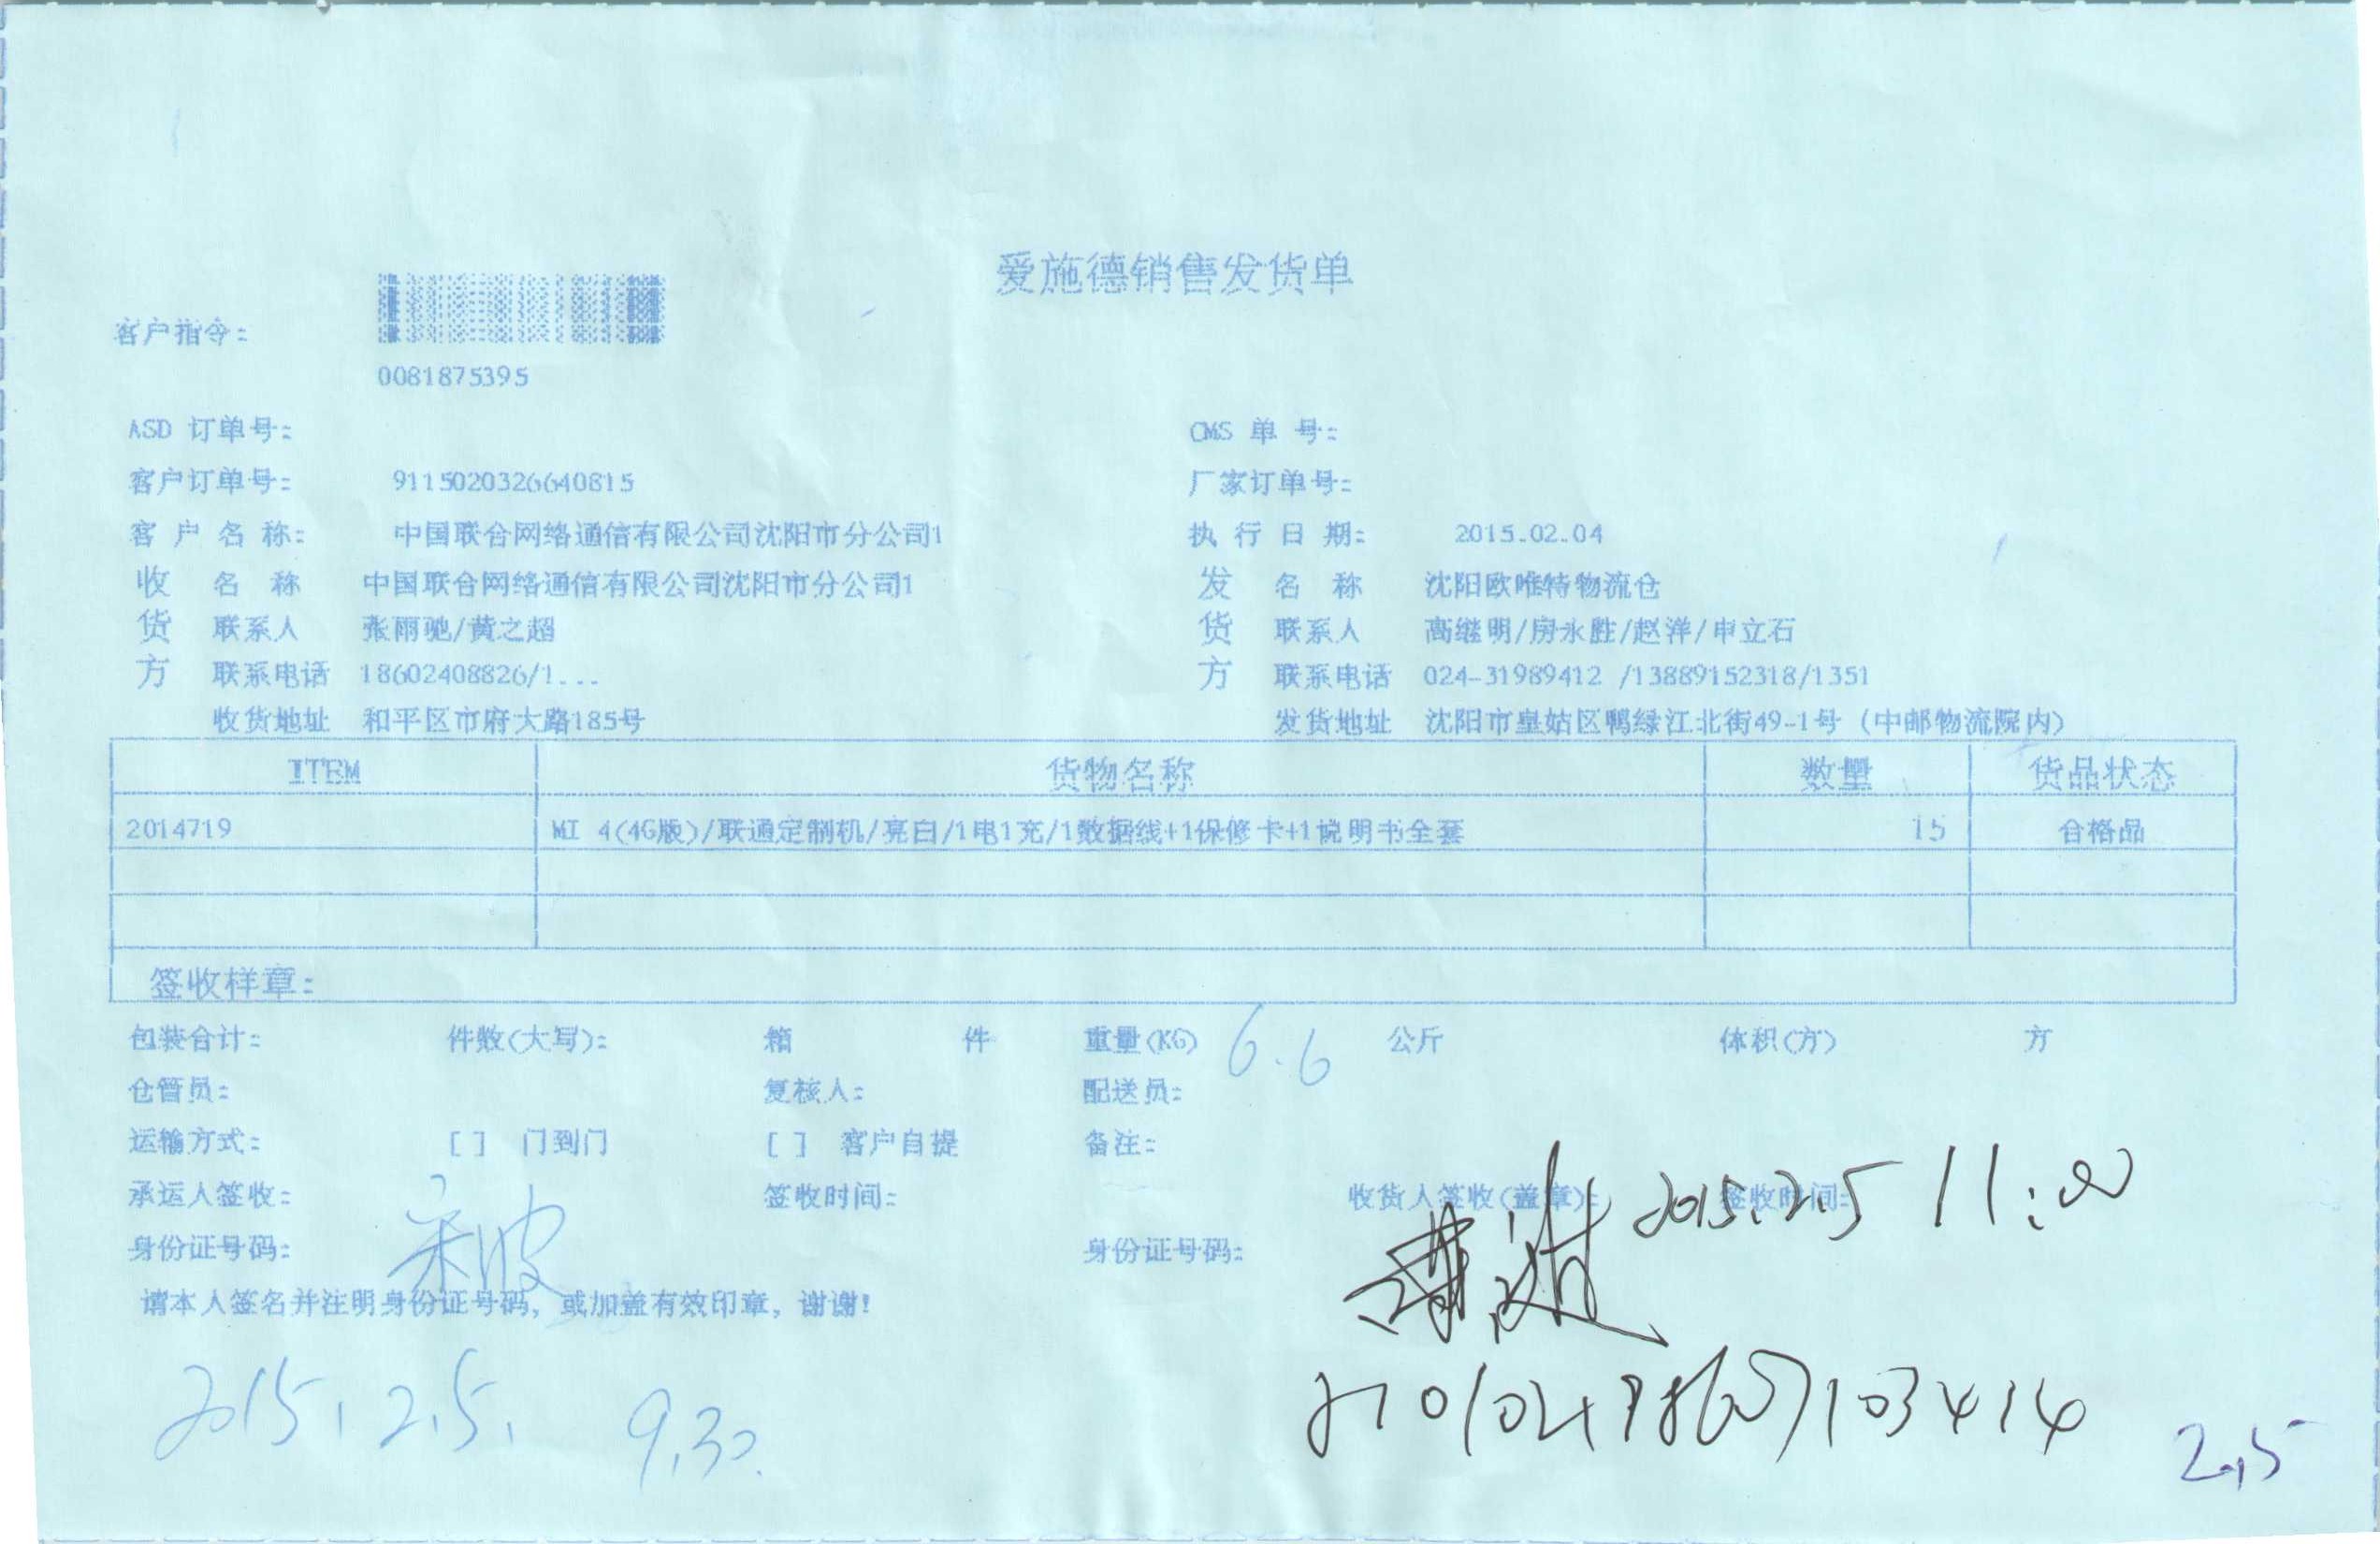 爱施德销售发货单
客户指令:
0081875395
ASD 订单号: CMS 单 号:
客户订单号: 9115020326640815 厂家订单号:
客 户 名 称: 中国联合网络通信有限公司沈阳市分公司1 执 行 日 期: 2015.02.04
收 名 称 中国联合网络通信有限公司沈阳市分公司1 发 名 称 沈阳欧唯特物流仓
货 联系人 张雨驰/黄之超 货 联系人 高继明/房永胜/赵洋/申立石
方 联系电话 18602408826/1... 方 联系电话 024-31989412 /13889152318/1351
收货地址 和平区市府大路185号 发货地址 沈阳市皇姑区鸭绿江北街49-1号 (中邮物流院内)
ITEM 货物名称 数量 货品状态
2014719 MI 4(4G版)/联通定制机/亮白/1电1充/1数据线+1保修卡+1说明书全套 15 合格品
签收样章:
包装合计: 件数(大写): 箱 件 重量(KG) 6.6 公斤 体积(方) 方
仓管员: 复核人: 配送员:
运输方式: [ ] 门到门 [ ] 客户自提 备注:
承运人签收: 签收时间: 收货人签收(盖章): 签收时间: 2015.2.5 11:00
身份证号码: 身份证号码:
请本人签名并注明身份证号码, 或加盖有效印章, 谢谢!
2015.2.5. 9.30.
2.5